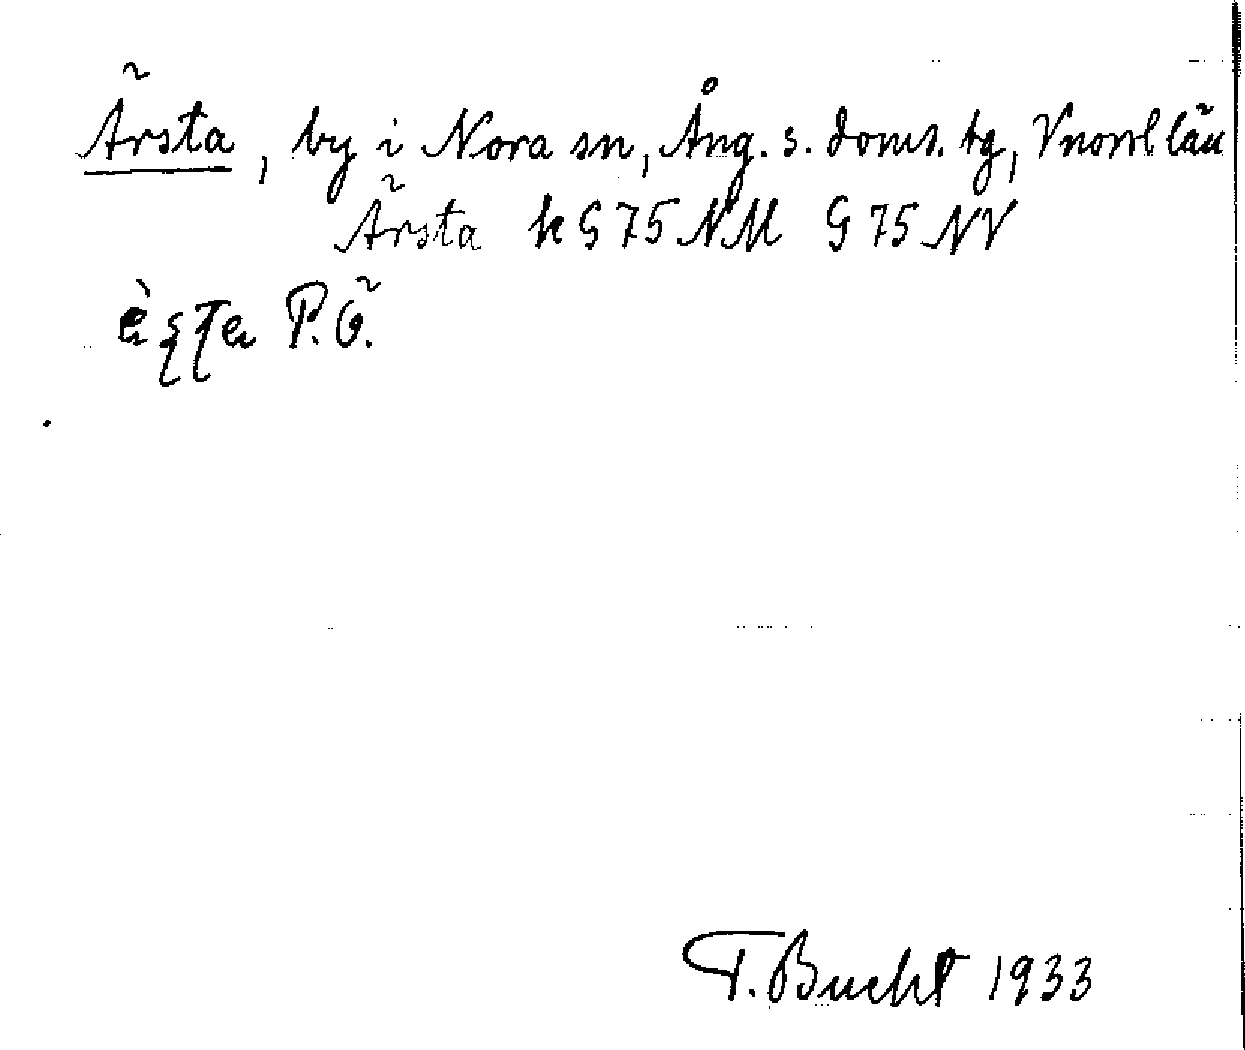 Ärsta, by i Nora sn, Ång. s. doms. tg, Vnorrl län
Ärsta k G 75 NM G 75 NV
P.Ö.
T. Bucht 1933